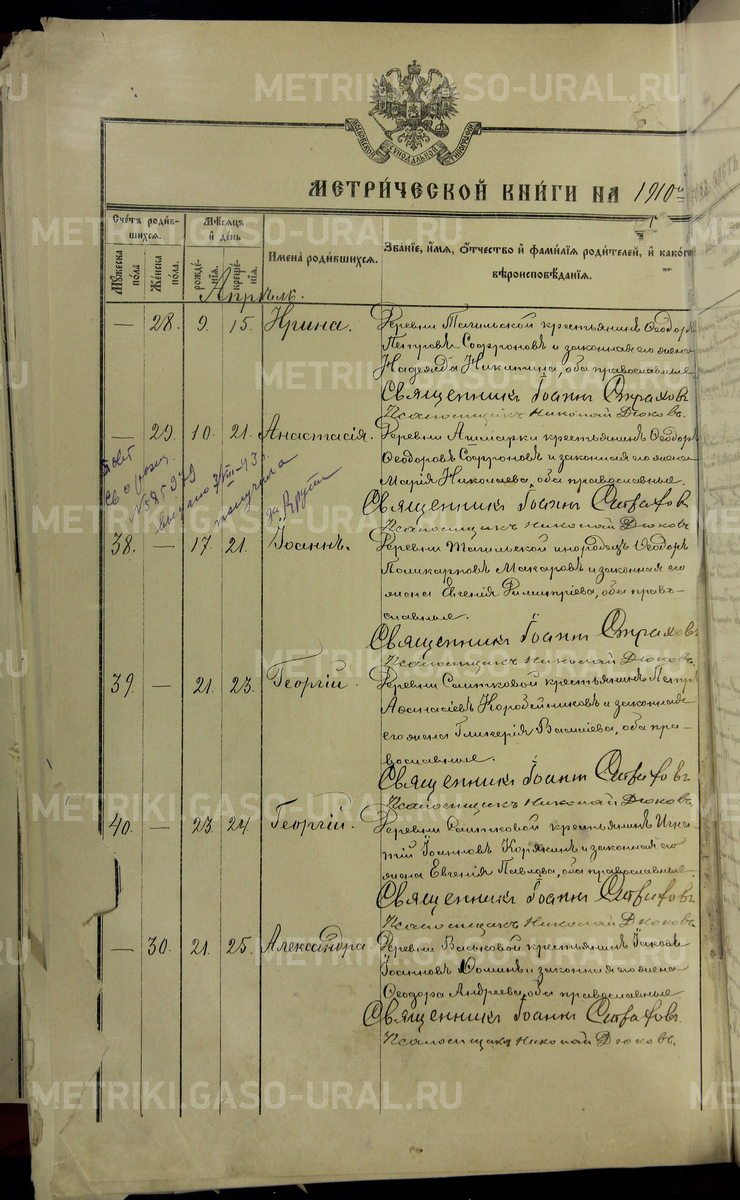 METRIKI.GASO-URAL.RU
МОСКОВСКОЙ СУНОДАЛЬНОЙ ТИПОГРАФІИ
МЕТРИ́ЧЕСКОЙ КНИ́ГИ НА 1910й
Сче́тъ роди́в-
шихся.
Мѣ́сяцъ
и҆ де́нь
Имена̀ роди́вшихся.
Зва́нїе, и҆́мя, ѻ҆́тчество и҆ фами́лїѧ роди́телей, и҆ како́гѡ
вѣроисповѣ́данїѧ.
I
Мꙋ́жеска по́ла
Же́нска по́ла.
рожде́нїѧ.
креще́нїѧ.
Апрѣль.
— 28. 9. 15. Ирина. Деревни Тагильской крестьянинъ Ѳеодоръ
Петровъ Софроновъ и законная его жена
Надежда Никитина, оба православные.
Священникъ Іоаннъ Страховъ
Псаломщикъ Николай Дюковъ.
— 29. 10. 21. Анастасія. Деревни Ашмарки крестьянинъ Ѳеодоръ
Ѳеодоровъ Софроновъ и законная его жена
Марія Николаева, оба православные.
Священникъ Іоаннъ Страховъ
Псаломщикъ Николай Дюковъ
Св о рожд.
выдано
получила
38. — 17. 21. Іоаннъ. Деревни Тагильской инородецъ Ѳеодоръ
Поликарповъ Макаровъ и законная его
жена Евгенія Димитріева, оба право-
славные.
Священникъ Іоаннъ Страховъ
Псаломщикъ Николай Дюковъ.
39. — 21. 23. Георгій. Деревни Саитковой крестьянинъ Петръ
Аѳанасіевъ Коробейниковъ и законная
его жена Гликерія Васиіева, оба пра-
вославные.
Священникъ Іоаннъ Страховъ
Псаломщикъ Николай Дюковъ.
40. — 23. 24. Георгій. Деревни Саитковой крестьянинъ Игна-
тій Іоанновъ Корякинъ и законная его
жена Евгенія Павлова, оба православные.
Священникъ Іоаннъ Страховъ
Псаломщикъ Николай Дюковъ.
— 30. 21. 25. Александра. Деревни Васьковой крестьянинъ Іаковъ
Іоанновъ Ѳоминъ и законная его жена
Ѳеодора Андреева, оба православные
Священникъ Іоаннъ Страховъ.
Псаломщикъ Николай Дюковъ.